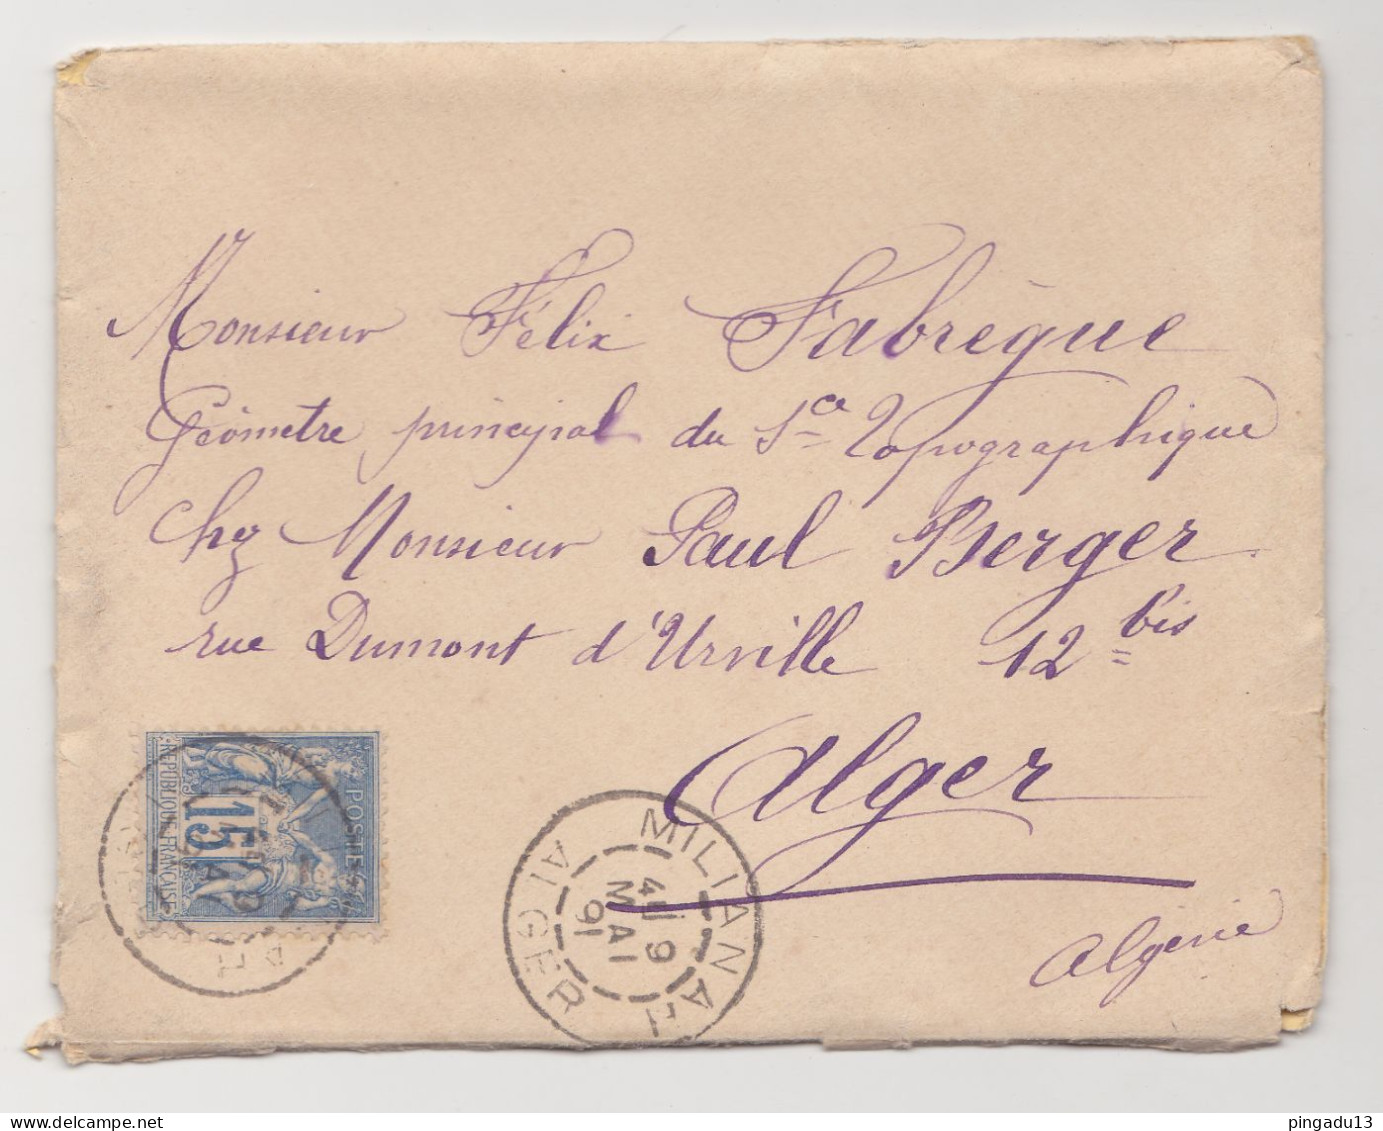 Monsieur Félix Fabrègue
Géomètre principal du Sce Topographique
Chz Monsieur Paul Berger
rue Dumont d'Urville 12 bis
Alger
Algérie
POSTES
15
REPUBLIQUE FRANÇAISE
MILIANAH
ALGER
9
MAI
91
pingadu13